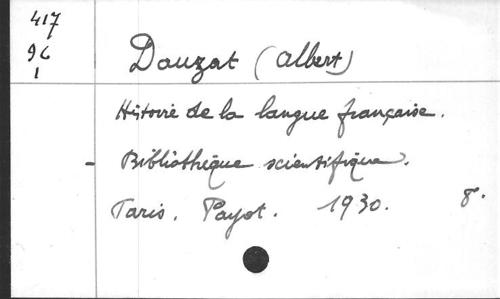 417
96
1
Dauzat (Albert)
Histoire de la langue française.
- Bibliothèque scientifique.
Paris. Payot. 1930. 8°.